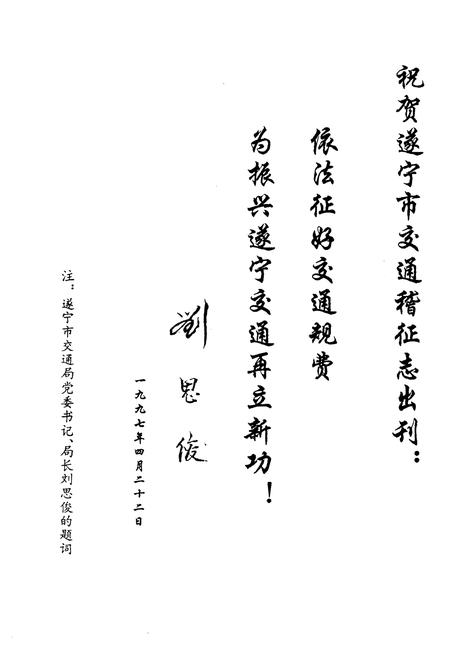 祝贺遂宁市交通稽征志出刊：
依法征好交通规费
为振兴遂宁交通再立新功！
劉思俊
一九九七年四月二十二日
注：遂宁市交通局党委书记、局长刘思俊的题词